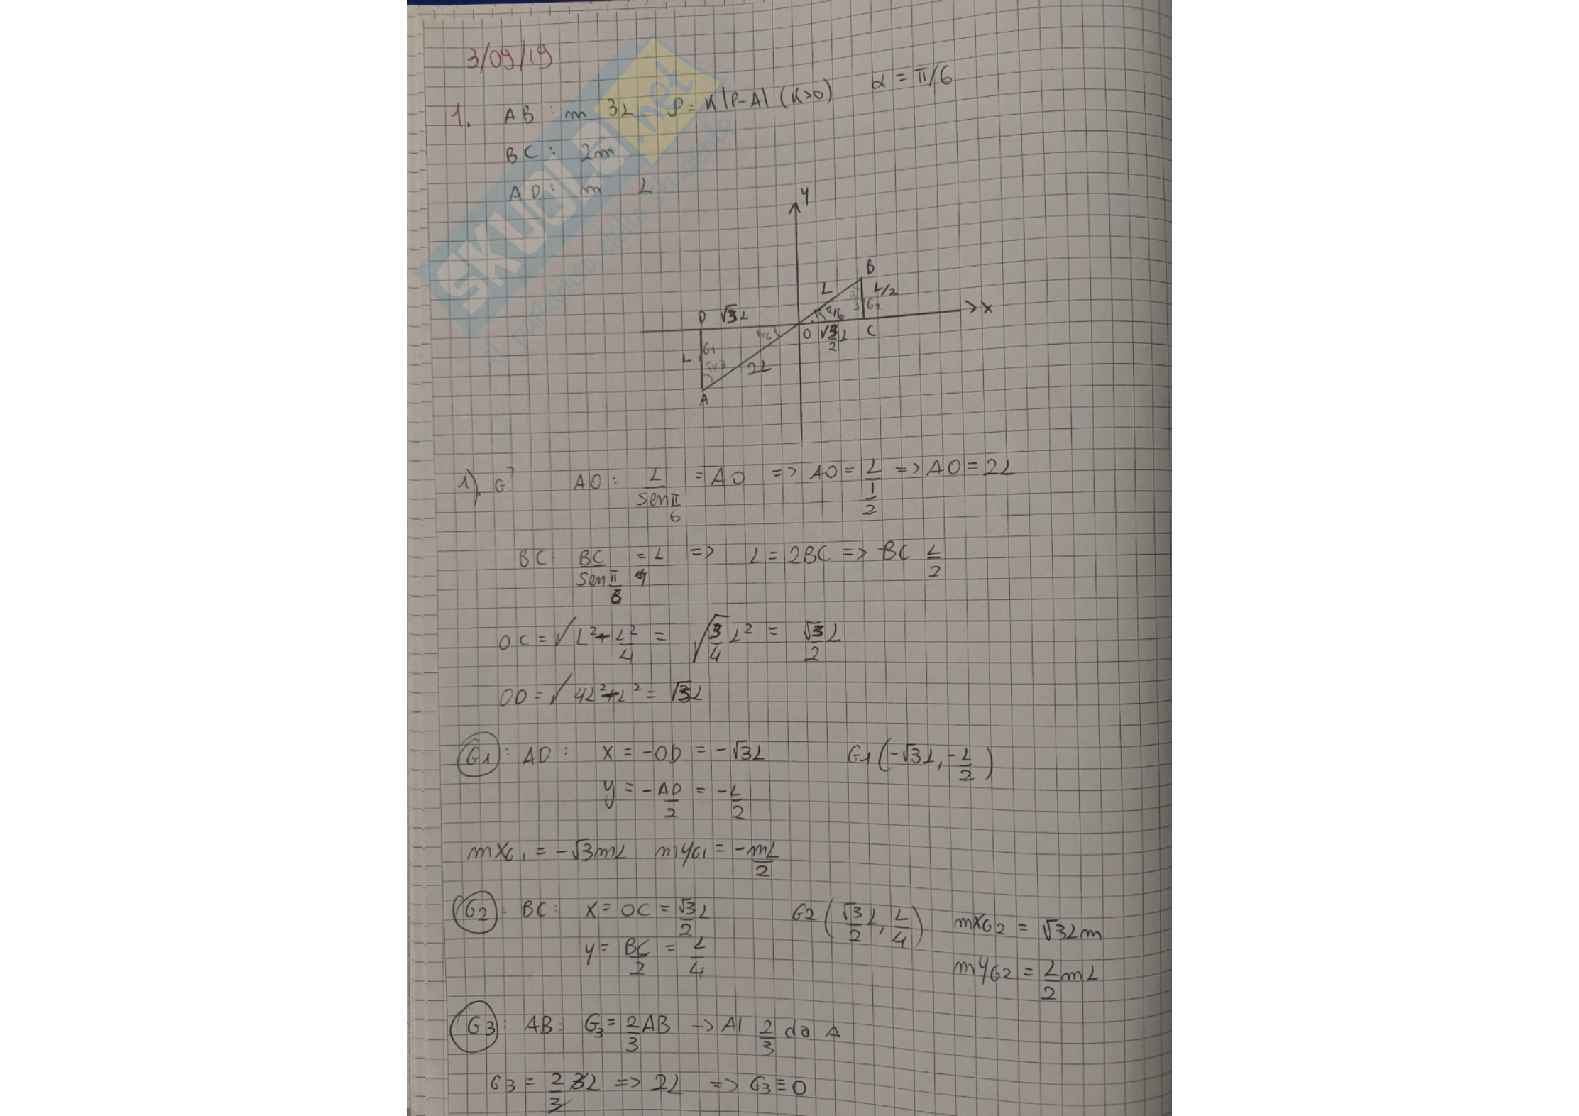 3/09/19
1. AB: m 3L ρ = K|P-A| (K>0) α = π/6
BC: 2m
AD: m L
SKUOLA.net
y
B
L
L/2
D √3L
π/6
G2
x
O
√3/2 L
C
G1
L
2L
A
1). G AO: L/sen π/6 = AO => AO = L/(1/2) => AO = 2L
BC BC/sen π/6 = L => L = 2BC => BC L/2
OC = √L²+L²/4 = √3/4 L² = √3/2 L
OD = √4L²+L² = √3L
G1: AD: x = -OD = -√3L G1(-√3L, -L/2)
y = -AD/2 = -L/2
mxG1 = -√3mL myG1 = -mL/2
G2: BC: x = OC = √3/2 L G2(√3/2 L, L/4) mxG2 = √3Lm
y = BC/2 = L/4 myG2 = L/2 mL
G3: AB: G3 = 2/3 AB -> AI 2/3 da A
G3 = 2/3 3L => 2L => G3 ≡ O